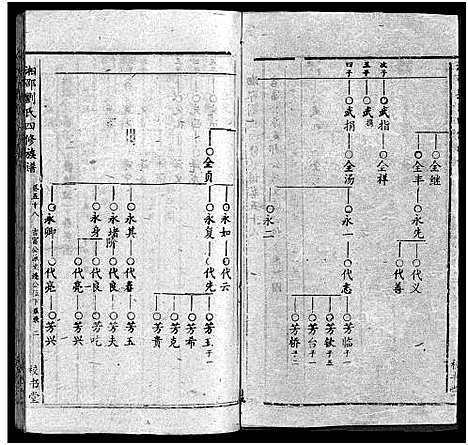 全继
全丰
永先
代义
代善
次子
武指
全祥
五子
武携
四子
武捐
全汤
永一
代志
芳临子一
芳钦子五
芳台子一
芳桥
永二
全贞
永如
代云
永复
代先
芳玉子一
芳希
芳克
芳贵
永其
代春
芳玉
永堵阶
代良
芳夫
永身
代良
芳吃
代亮
芳兴
永卿
代亮
芳兴
湘鄉劉氏四修族譜
卷五十八
二
校书堂